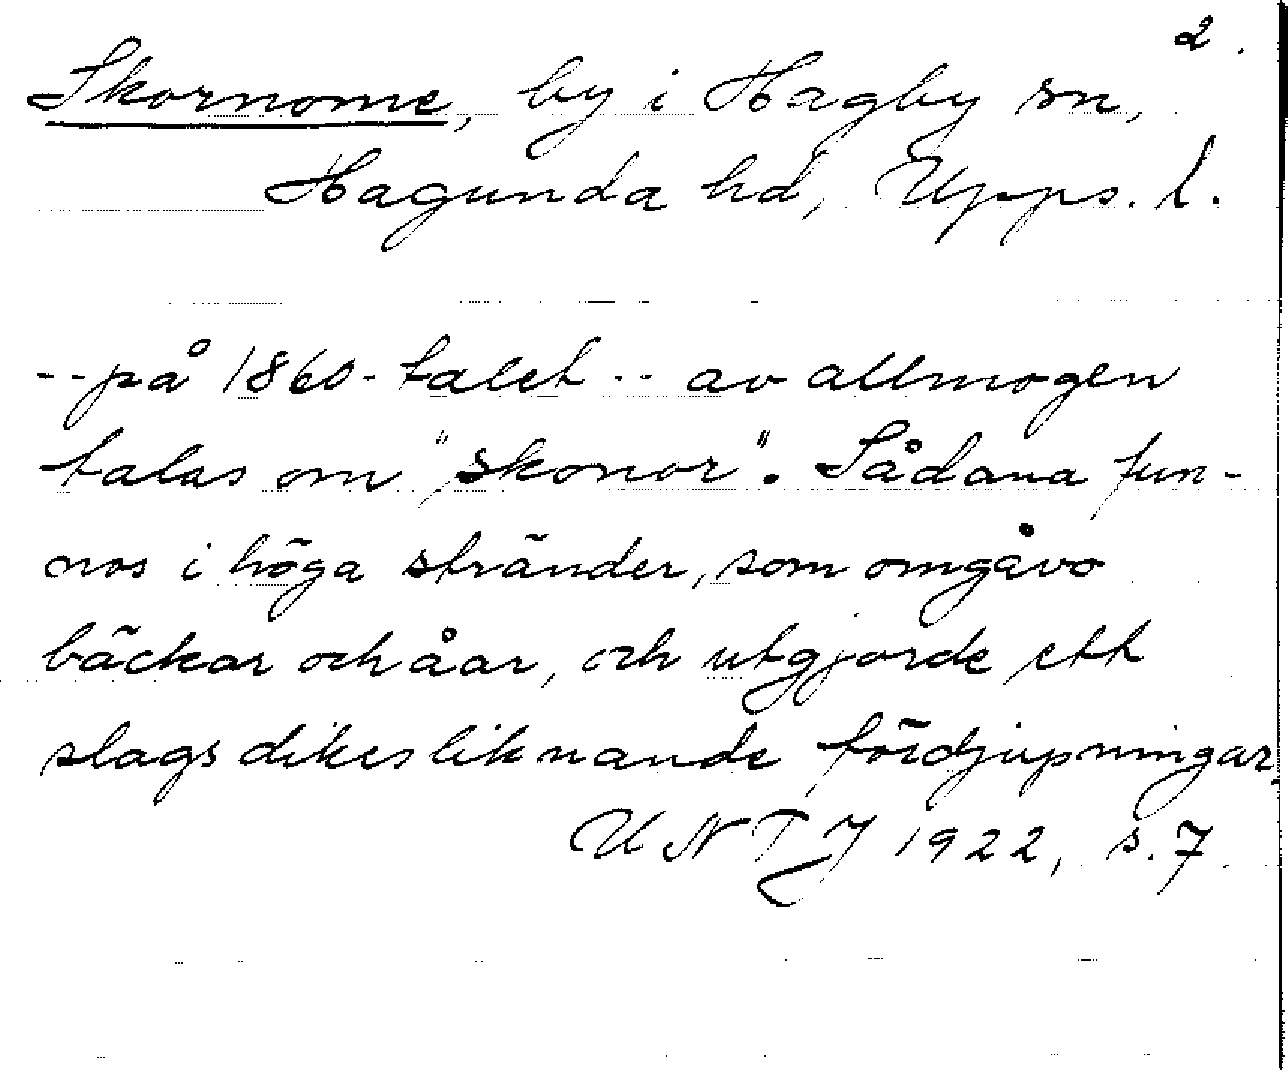 2.
Skornome, by i Hagby sn,
Hagunda hd, Upps. l.
--på 1860-talet -- av allmogen
talas om "skonor". Sådana fun-
nos i höga stränder, som omgåvo
bäckar och åar, och utgjorde ett
slags dikesliknande fördjupningar,
UNT J 1922, s. 7